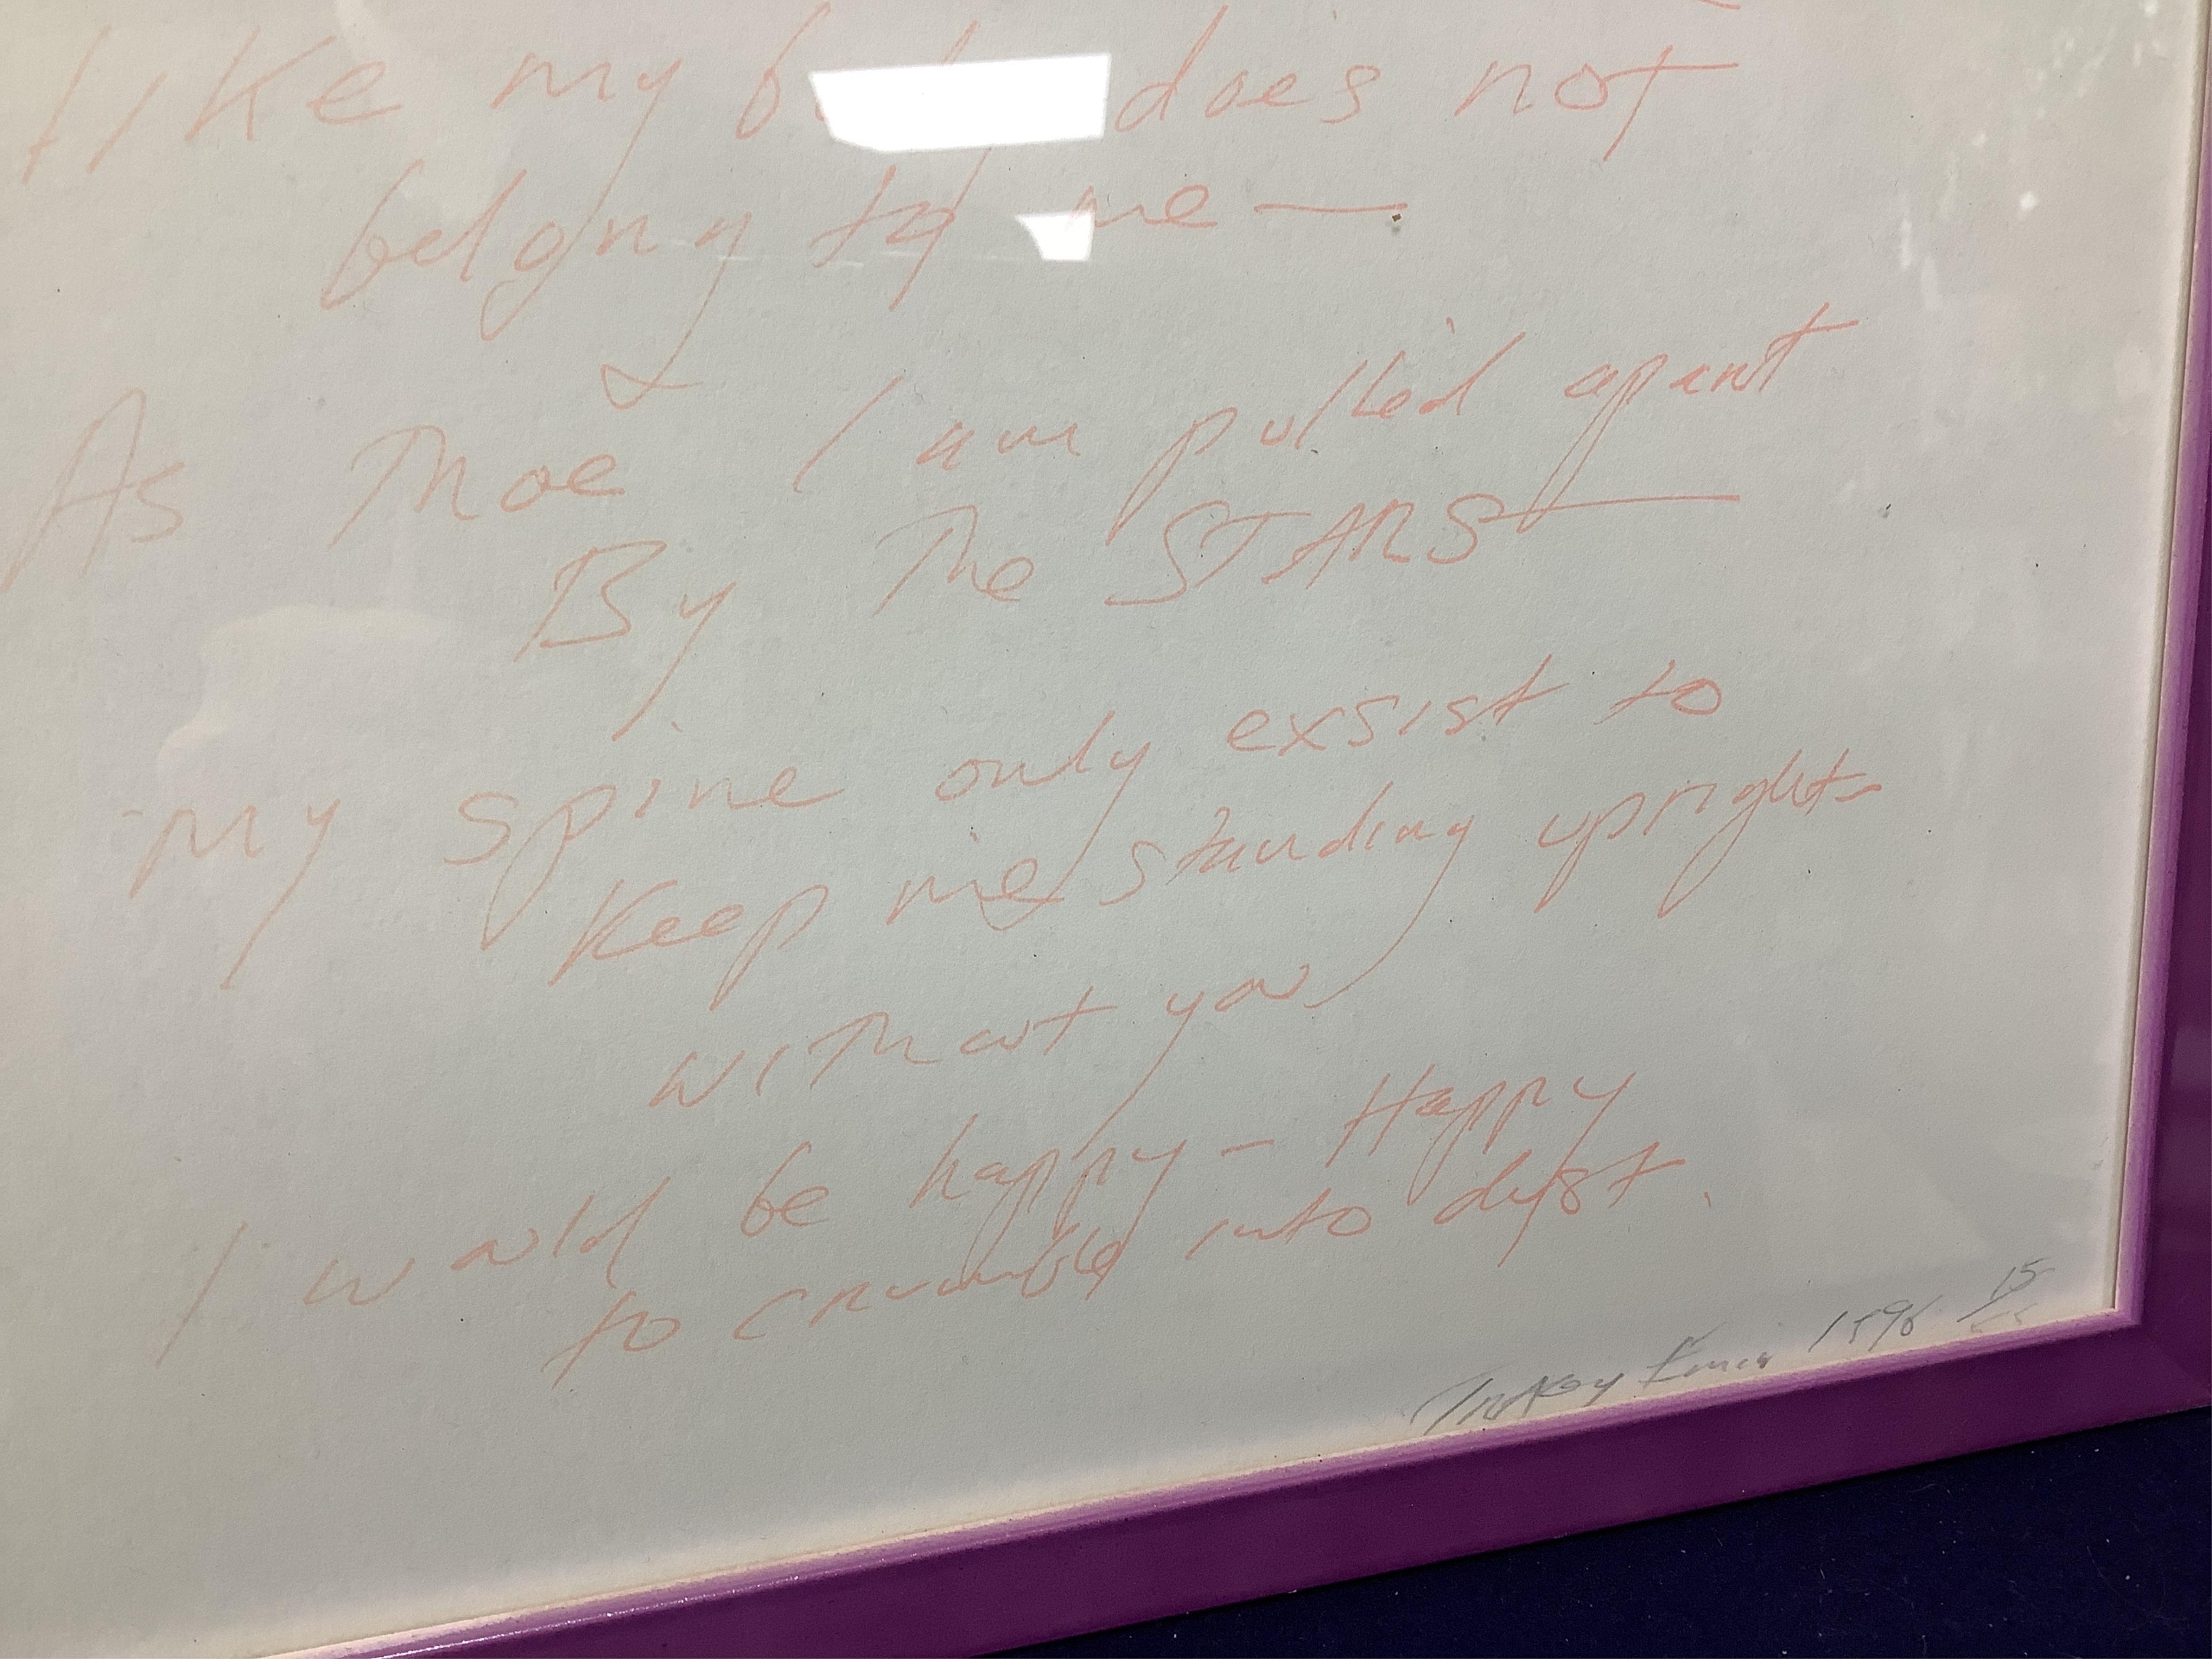 like my does not
belong to me —
As thoe I am pulled apart
By The STARS —
my spine only exsist to
Keep me standing upright -
without you
I would be happy - Happy
to crumble into dust.
Tracey Emin 1996 15/